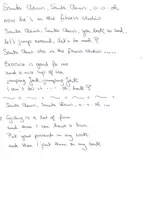 Santa Claus, Santa Claus, o.o. oh
now he's in the fitness studio
Santa Claus, Santa Claus, you look so sad,
let's jump around, let's be mad!
Santa Claus also in the fitness studio ......
Exercise is good for me
and a nice cup of tea,
jumping Jack jumping Jack
I can't do it ... oh, back!
Santa Claus, Santa Claus, o.o. oh ...
Cycling is a lot of fun
and then I can have a
Put your presents in my
and then I put them in my